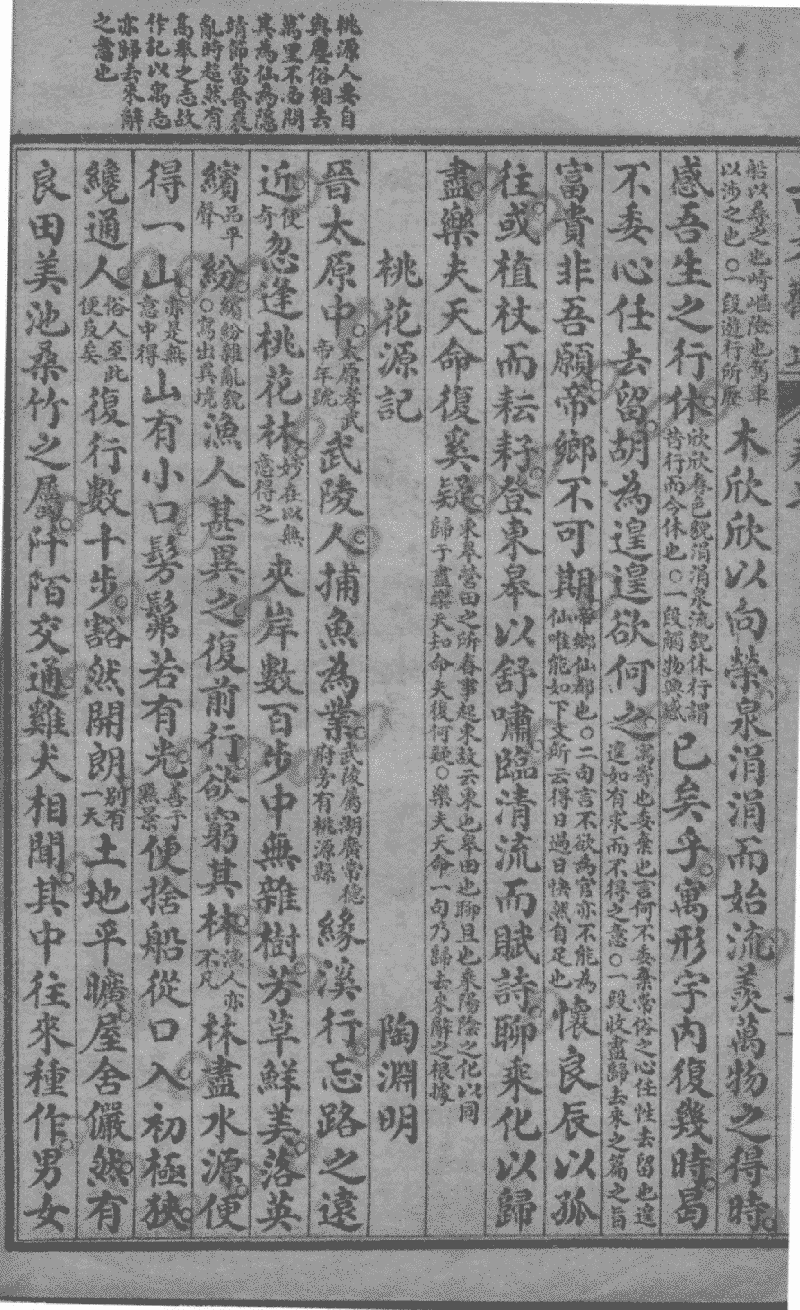 桃源人要自
與塵俗相去
萬里不必問
其為仙為隱
靖節當晉衰
亂時超然有
高舉之志故
作記以寓志
亦歸去來辭
之意也
船以尋之也崎嶇險也駕車
以涉之也○一段遊行所歷
木欣欣以向榮泉涓涓而始流羨萬物之得時
感吾生之行休
欣欣春色貌涓涓泉流貌休行謂
昔行而今休也○一段觸物興感
已矣乎寓形宇內復幾時曷
不委心任去留胡為遑遑欲何之
寓寄也委棄也言何不委棄常俗之心任性去留也遑
遑如有求而不得之意○一段收盡歸去來之篇之旨
富貴非吾願帝鄉不可期
帝鄉仙都也○二句言不欲為官亦不能為
仙唯能如下文所云得日過日快然自足也
懷良辰以孤
往或植杖而耘耔登東皋以舒嘯臨清流而賦詩聊乘化以歸
盡樂夫天命復奚疑
東皋營田之所春事起東故云東也皋田也聊且也乘陽陰之化以同
歸于盡樂天知命夫復何疑○樂夫天命一句乃歸去來辭之根據
桃花源記
陶淵明
晉太原中
太原孝武
帝年號
武陵人捕魚為業
武陵屬湖廣常德
府旁有桃源縣
緣溪行忘路之遠
近
便
奇
忽逢桃花林
妙在以無
意得之
夾岸數百步中無雜樹芳草鮮美落英
繽
品平
聲
紛
繽紛雜亂貌
○寫出異境
漁人甚異之復前行欲窮其林
漁人亦
不凡
林盡水源便
得一山
亦是無
意中得
山有小口髣髴若有光
善于
點景
便捨船從口入初極狹
纔通人
俗人至此
便反矣
復行數十步豁然開朗
別有
一天
土地平曠屋舍儼然有
良田美池桑竹之屬阡陌交通雞犬相聞其中往來種作男女